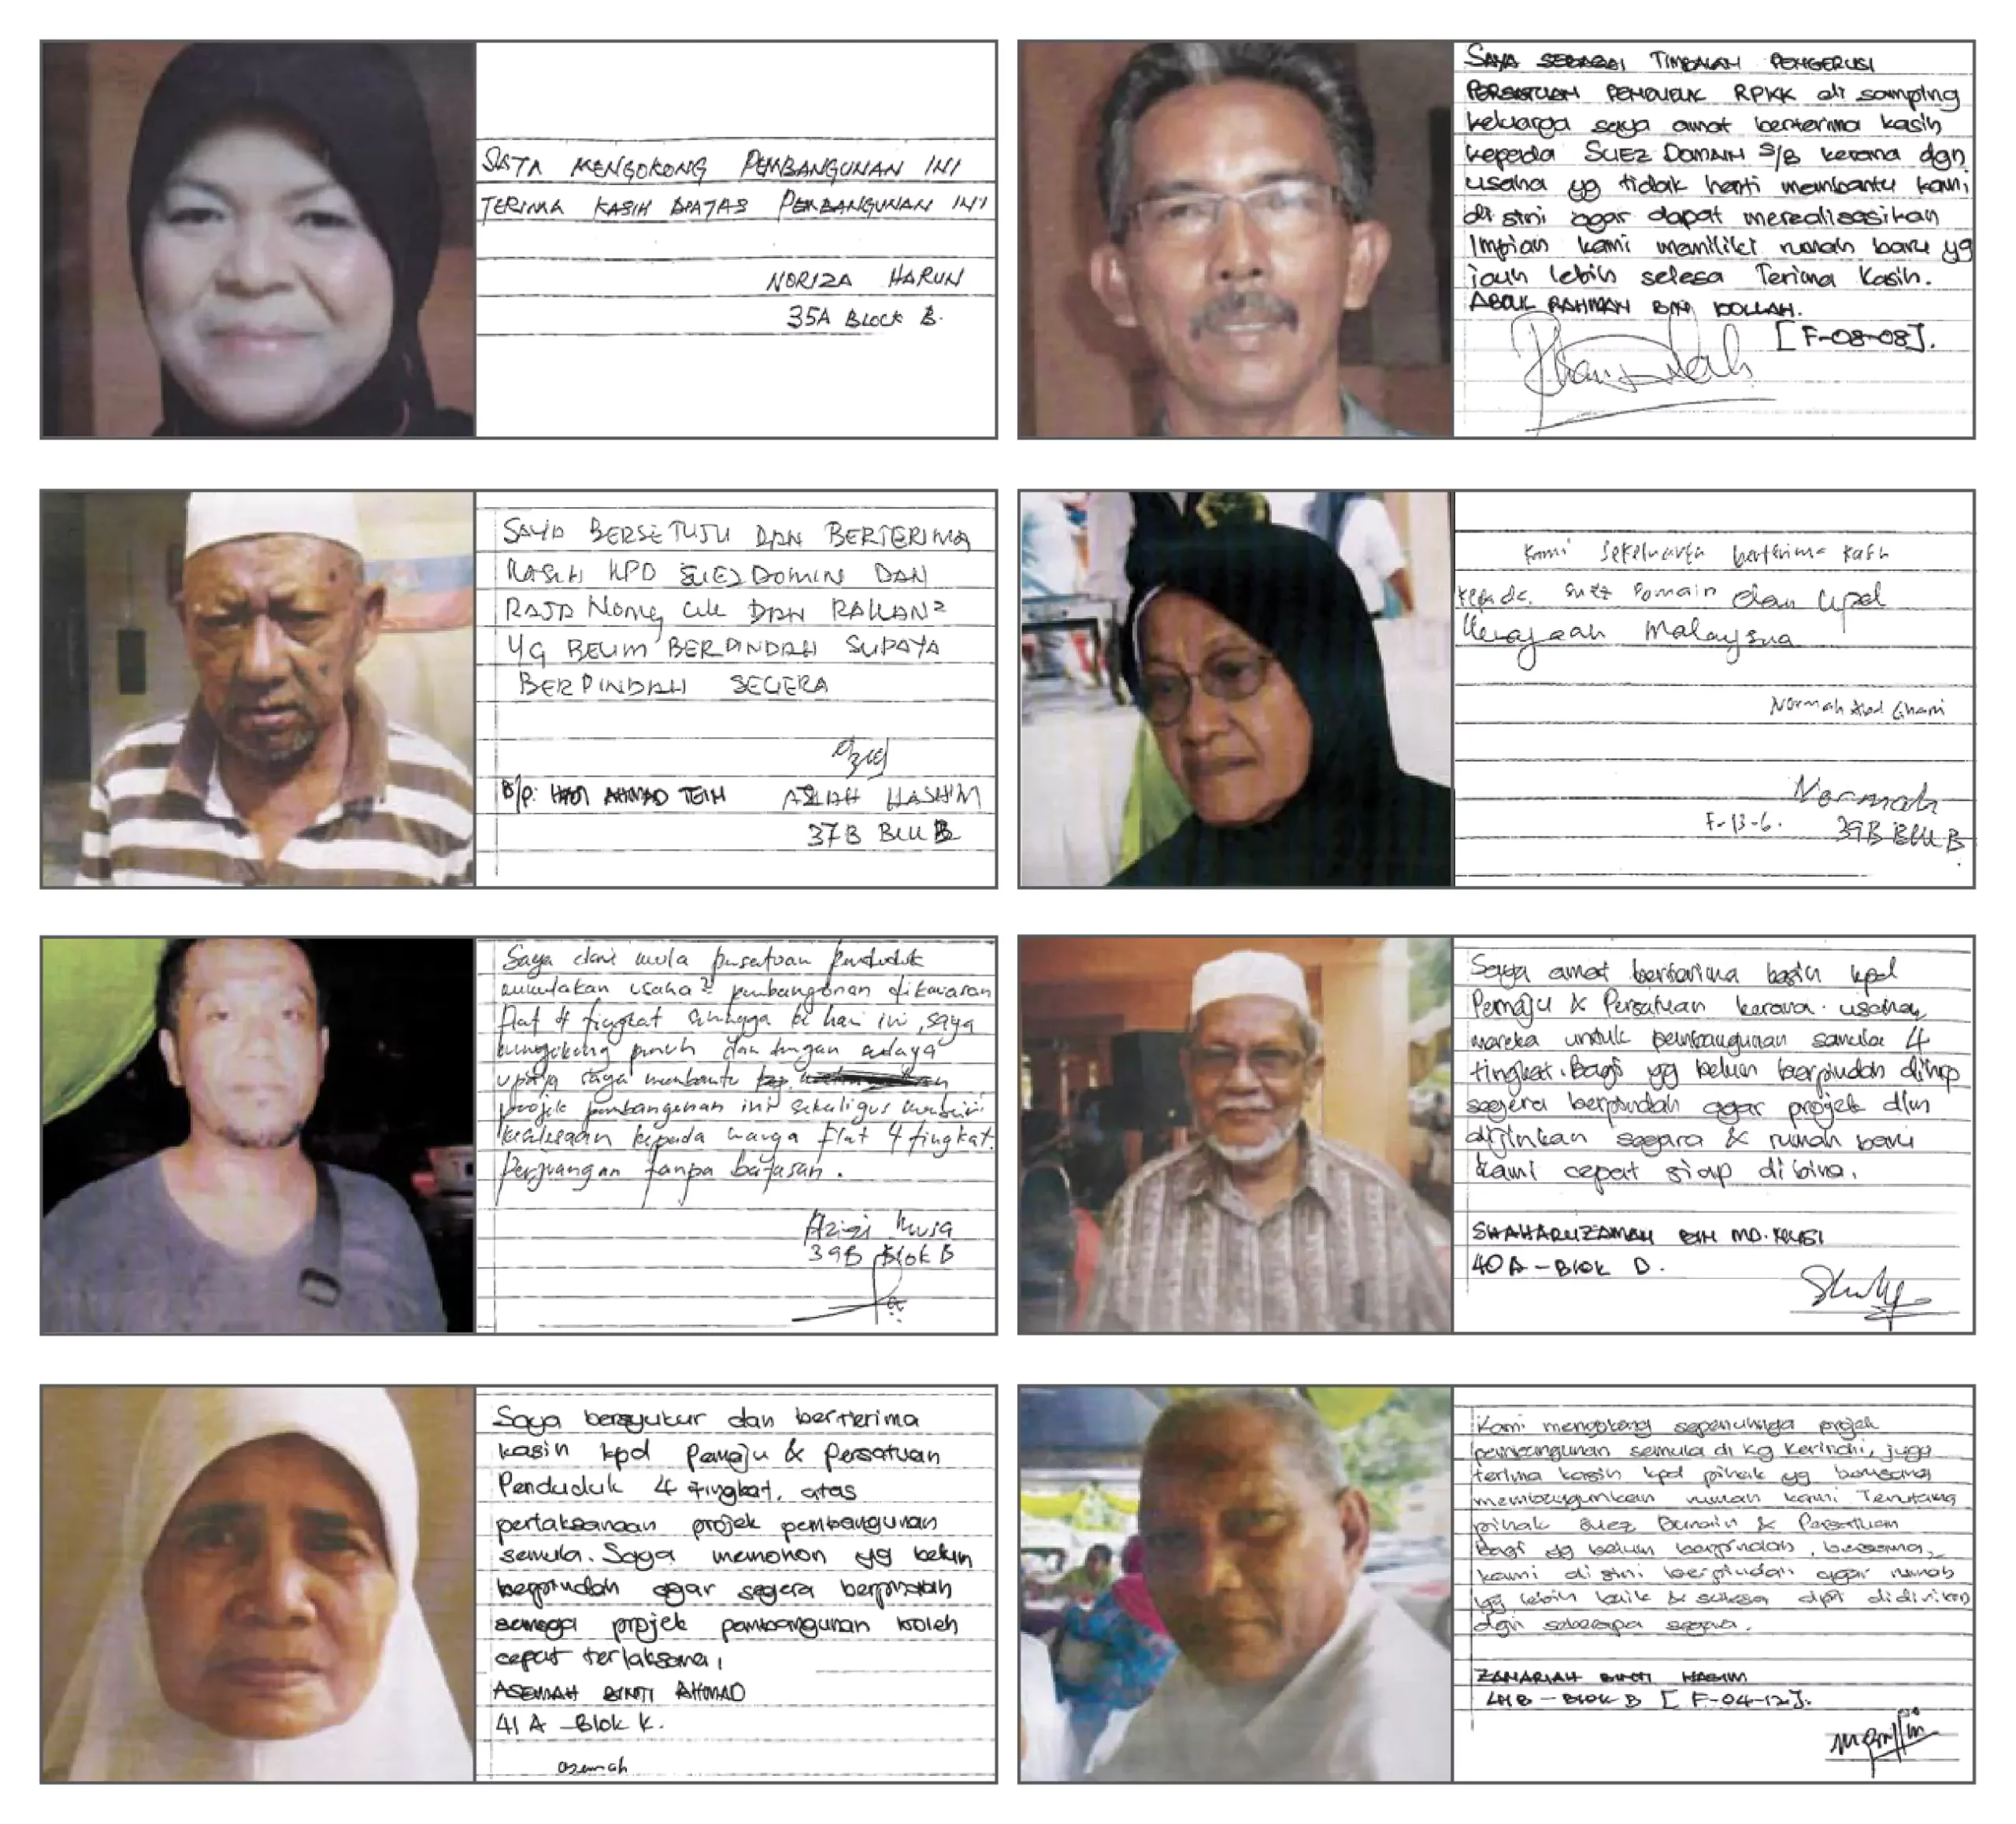 SAYA MENGOKONG PEMBANGUNAN INI
TERIMA KASIH DIATAS PEMBANGUNAN INI
NORIZA HARUN
35A BLOCK B.
SAYA SEBAGAI TIMBALAN PENGERUSI
PERSATUAN PENDUDUK RPKK di samping
keluarga saya amat berterima kasih
kepada SUEZ DOMAIN S/B kerana dgn
usaha yg tidak henti membantu kami
di sini agar dapat merealisasikan
Impian kami memiliki rumah baru yg
jauh lebih selesa Terima Kasih.
ABDUL RAHMAN BIN DOLLAH.
[F-08-08].
SAYA BERSETUJU DAN BERTERIMA
KASIH KPD SUEZ DOMIN DAN
RAJA Nong Cik DAN RAKAN2
YG BELUM BERPINDAH SUPAYA
BERPINDAH SEGERA
B/P: HAJI AHMAD TEIH AZIAH HASHIM
37B BLK B
Kami sekeluarga berterima kasih
kepada Suez Domain dan kpd
Kerajaan Malaysia
Normah Abd Ghani
Normah
F-13-6. 39B BLK B
Saya dari mula persatuan penduduk
mulakan usaha2 pembangunan dikawasan
flat 4 tingkat sehingga ke hari ini, saya
mengokong penuh dan dengan adaya
upaya saya membantu
projek pembangunan ini sekaligus
keselesaan kepada warga flat 4 tingkat.
Perjuangan tanpa batasan.
Azizi Musa
39B Blok B
Saya amat berterima kasih kpd
Pemaju & Persatuan kerana usaha
mereka untuk pembangunan semula 4
tingkat. Bagi yg belum berpindah diharap
segera berpindah agar projek dlm
dijinkan segera & rumah baru
kami cepat siap dibina.
SHAHARUZAMAN BIN MD.
40A - Blok D.
Saya bersyukur dan berterima
kasih kpd Pemaju & Persatuan
Penduduk 4 tingkat, atas
perlaksanaan projek pembangunan
semula. Saya memohon yg belum
berpindah agar segera berpindah
semoga projek pembangunan boleh
cepat terlaksana,
ASEMAH BINTI AHMAD
41A - Blok K.
asemah
Kami mengokong sepenuhnya projek
pembangunan semula di Kg Kerinchi, juga
terima kasih kpd pihak yg
membangunkan rumah kami Terutama
pihak Suez Domain & Persatuan
Bagi yg belum berpindah, bersama
kami di sini berpindah agar rumah
yg lebih baik & selesa dpt didirikan
dgn seberapa segera.
ZAHARIAH BINTI HASIM
- BLOK B [F-04-12].